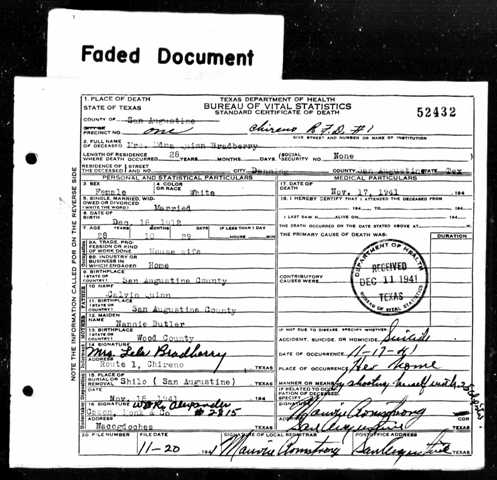 Faded Document
1. PLACE OF DEATH
STATE OF TEXAS
TEXAS DEPARTMENT OF HEALTH
BUREAU OF VITAL STATISTICS
STANDARD CERTIFICATE OF DEATH
52432
COUNTY OF San Augustine
PRECINCT NO. one
Chireno R.F.D. #1
GIVE STREET AND NUMBER OR NAME OF INSTITUTION
2. FULL NAME
OF DECEASED Mrs. Edna Quinn Bradberry
LENGTH OF RESIDENCE
WHERE DEATH OCCURRED 28 YEARS MONTHS DAYS
SOCIAL
SECURITY NO. None
RESIDENCE OF
THE DECEASED STREET AND NO. CITY Denning COUNTY San Augustine STATE Tex
PERSONAL AND STATISTICAL PARTICULARS
MEDICAL PARTICULARS
3. SEX Female
4. COLOR
OR RACE White
17. DATE OF
DEATH Nov. 17, 1941 194
5. SINGLE, MARRIED, WIDOWED OR DIVORCED
(WRITE THE WORD) Married
18. I HEREBY CERTIFY THAT I ATTENDED THE DECEASED FROM
194 TO 194
I LAST SAW H ALIVE ON 194
6. DATE OF
BIRTH Dec. 18 1912
THE DEATH OCCURRED ON THE DATE STATED ABOVE AT M.
7. AGE YEARS MONTHS DAYS IF LESS THAN 1 DAY
28 10 29 HOURS MIN
THE PRIMARY CAUSE OF DEATH WAS:
DURATION
8A. TRADE, PROFESSION OR KIND
OF WORK DONE House Wife
8B. INDUSTRY OR
BUSINESS IN
WHICH ENGAGED Home
9. BIRTHPLACE
(STATE OR
COUNTRY) San Augustine County
DEPARTMENT OF HEALTH
RECEIVED
DEC 11 1941
TEXAS
BUREAU OF VITAL STATISTICS
CONTRIBUTORY
CAUSES WERE
10. NAME
Calvin Quinn
11. BIRTHPLACE
(STATE OR
COUNTRY) San Augustine County
12. MAIDEN
NAME Nannie Butler
IF NOT DUE TO DISEASE, SPECIFY WHETHER:
ACCIDENT, SUICIDE, OR HOMICIDE Suicide
13. BIRTHPLACE
(STATE OR
COUNTRY) Wood County
DATE OF OCCURRENCE 11-17-41
14. SIGNATURE
Mrs. Lela Bradberry
PLACE OF OCCURRENCE Her home
ADDRESS
Route 1, Chireno TEXAS
MANNER OR MEANS by shooting herself with
15. PLACE OF
BURIAL OR
REMOVAL Shilo (San Augustine) TEXAS
IF RELATED TO OCCUPATION
OF DECEASED,
SPECIFY
DATE
Nov. 18 1941 194
16. SIGNATURE
W.R. Alexander
#2815
SIGNATURE
Maurice Armstrong
ADDRESS
Nacogdoches TEXAS
San Augustine TEXAS
20. FILE NUMBER
FILE DATE
11-20 194
SIGNATURE OF LOCAL REGISTRAR
Maurice Armstrong
POSTOFFICE ADDRESS
San Augustine TEXAS
NOTE THE INFORMATION CALLED FOR ON THE REVERSE SIDE